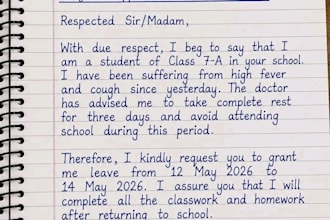 Respected Sir/Madam,
With due respect, I beg to say that I
am a student of Class 7-A in your school.
I have been suffering from high fever
and cough since yesterday. The doctor
has advised me to take complete rest
for three days and avoid attending
school during this period.
Therefore, I kindly request you to grant
me leave from 12 May 2026 to
14 May 2026. I assure you that I will
complete all the classwork and homework
after returning to school.